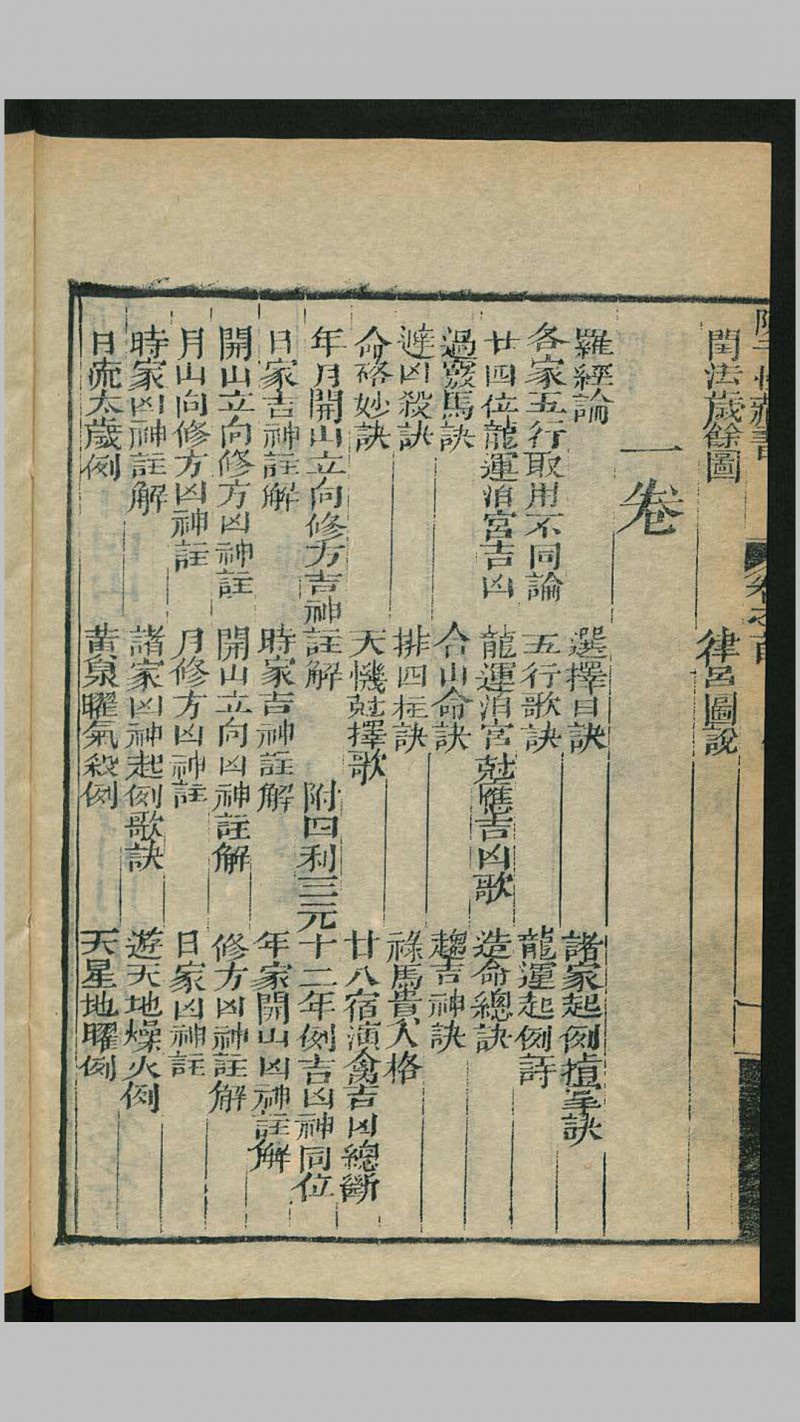 閏法歲餘圖　律呂圖說
一卷
羅經論　選擇日訣　諸家起例掌訣
各家五行取用不同論　五行歌訣　龍運起例詩
廿四位龍運泊宮吉凶　龍運泊宮尅應吉凶歌　造命總訣
馬訣　合山命訣　趨吉神訣
避凶殺訣　排四柱訣　祿馬貴人格
命格妙訣　天機尅擇歌　廿八宿演禽吉凶總斷
年月開山立向修方吉神註解　附四利三元十二年例吉凶神同位
日家吉神註解　時家吉神註解　年家開山凶神註解
開山立向修方凶神註　開山立向凶神註解　修方凶神註解
月山向修方凶神註　月修方凶神註　日家凶神註
時家凶神註解　諸家凶神起例歌訣　遊天地燥火例
日流太歲例　黃泉曜氣殺例　天星地曜例